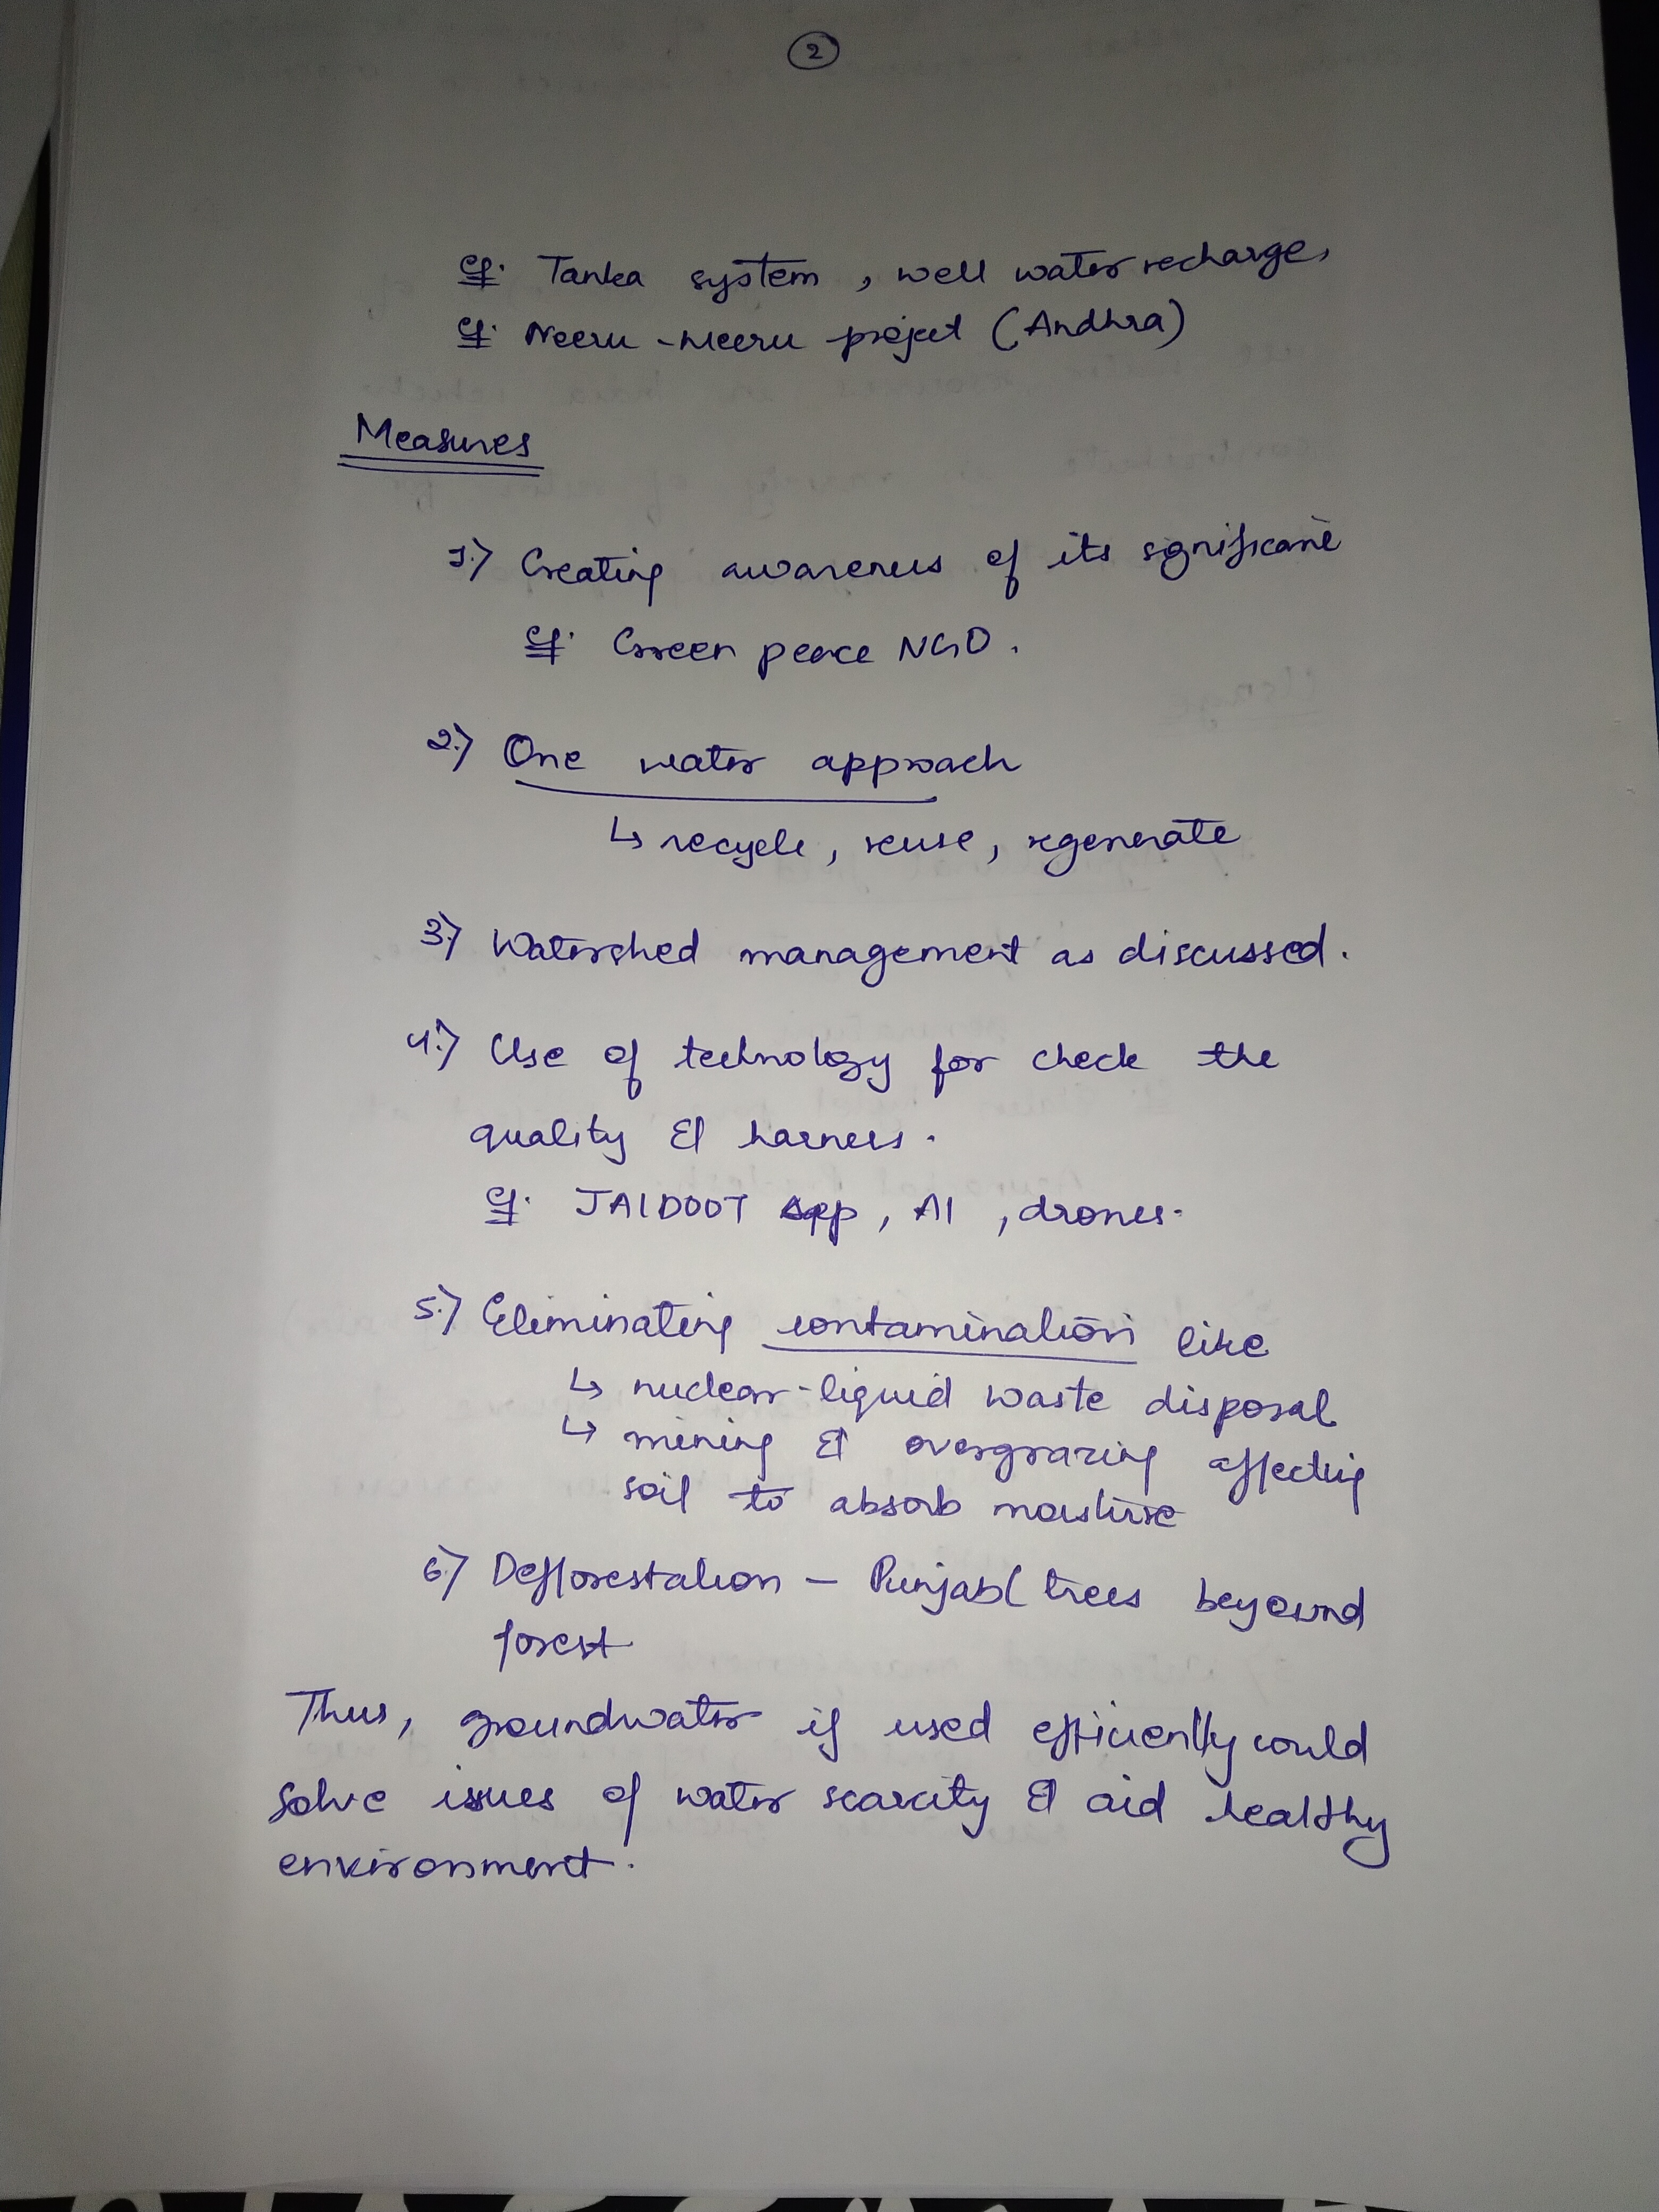 2
eg. Tanka system, well water recharge,
eg. Neeru-Meeru project (Andhra)
Measures
1.) Creating awareness of its significance
eg. Green peace NGO.
2.) One water approach
↳ recycle, reuse, regenerate
3.) Watershed management as discussed.
4.) Use of technology for check the
quality & harness.
eg. JALDOOT App, AI, drones.
5.) Eliminating contamination like
↳ nuclear-liquid waste disposal
↳ mining & overgrazing affecting
soil to absorb moisture
6.) Defforestation – Punjab (trees beyound
forest
Thus, groundwater if used efficiently could
solve issues of water scarcity & aid healthy
environment.